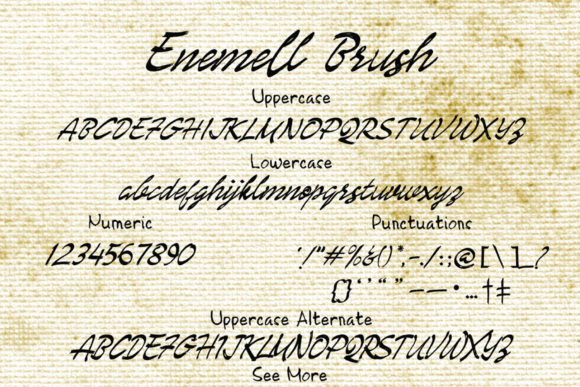 Enemell Brush
Uppercase
ABCDEFGHIJKLMNOPQRSTUVWXYZ
Lowercase
abcdefghijklmnopqrstuvwxyz
Numeric
Punctuations
1234567890
'!"#%&()*,-./:;@[\]_?
{}‘’“”–—•…†‡
Uppercase Alternate
ABCDEFGHIJKLMNOPQRSTUVWXYZ
See More